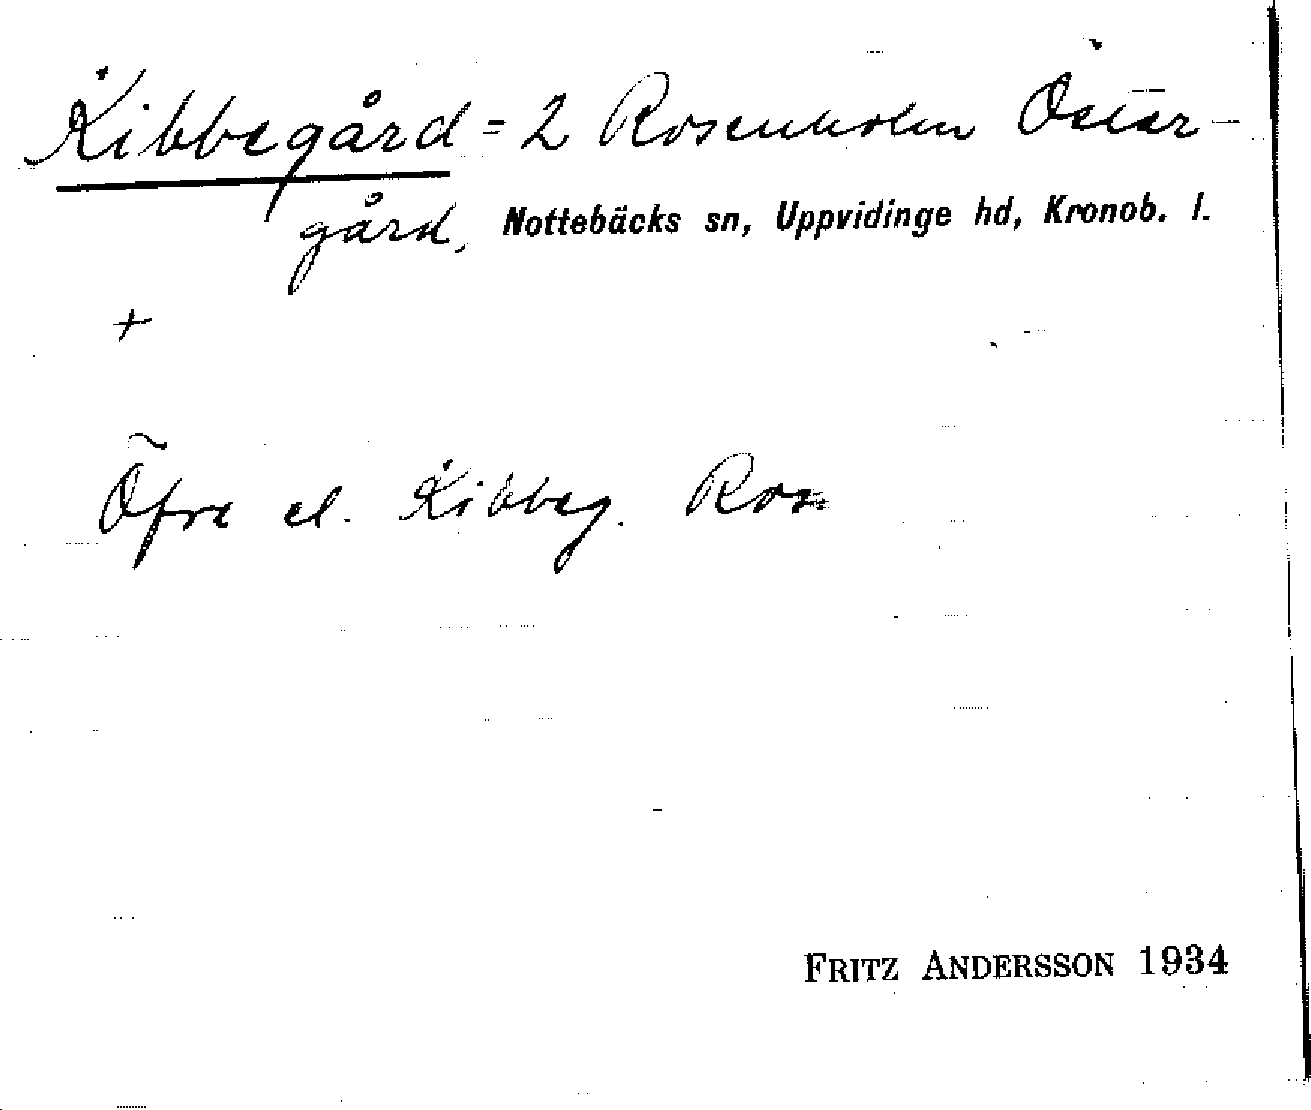 Kibbegård = 2 Rosenholm Öster-
gård, Nottebäcks sn, Uppvidinge hd, Kronob. l.
+
Öfre el. Kibbeg. Ros
FRITZ ANDERSSON 1934